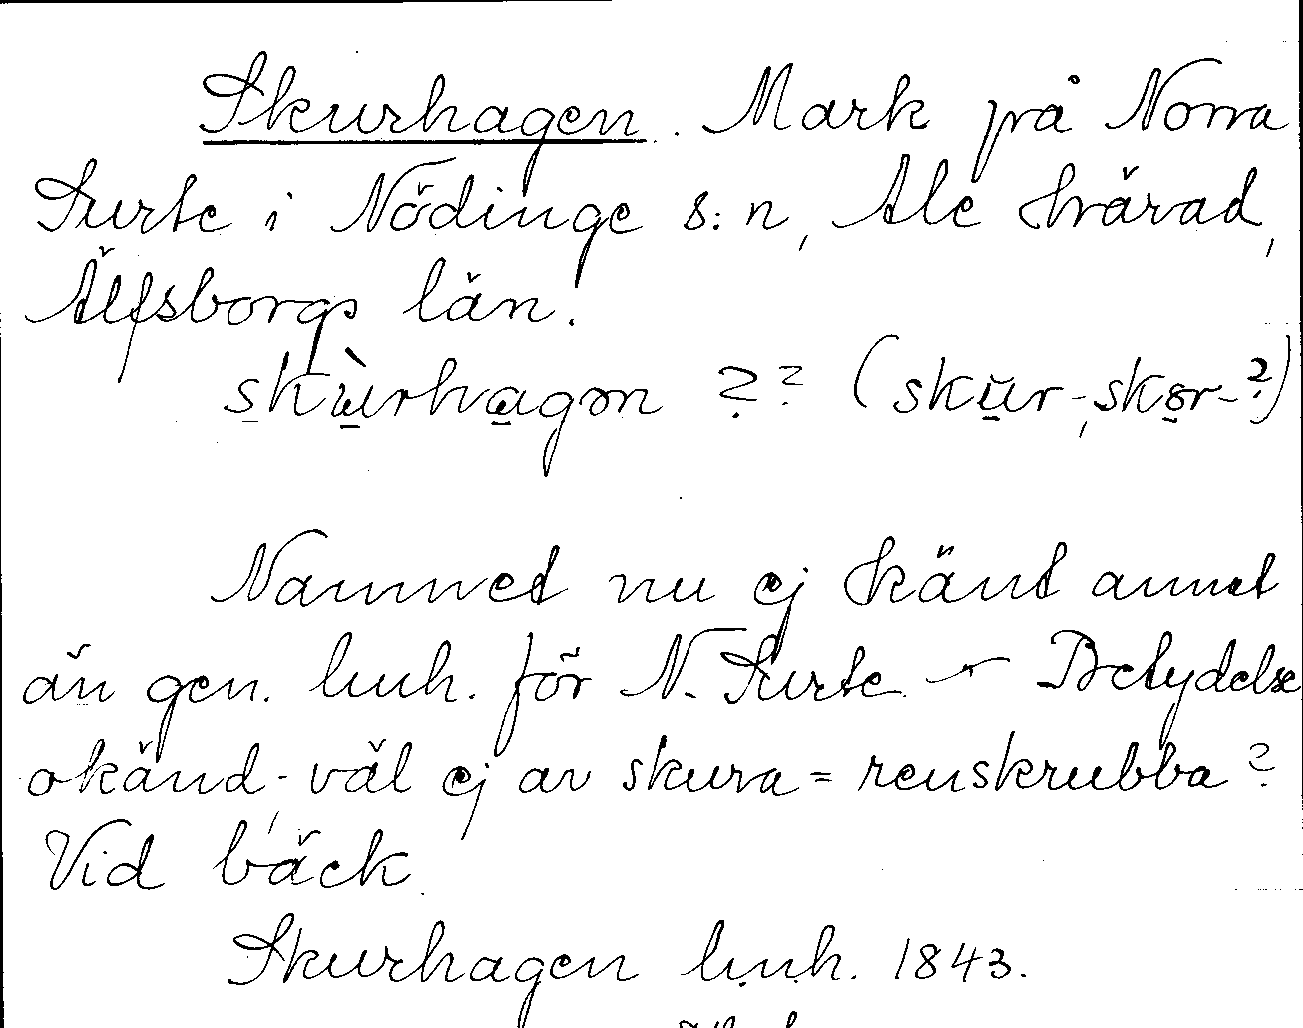 Skurhagen. Mark på Norra
Surte i Nödinge s:n, Ale härad,
Älfsborgs län.
skùrhagən ?? (skur-, skor-?)
Namnet nu ej känt annat
än gen. lmh. för N. Surte - Betydelse
okänd, väl ej av skura = renskrubba?
Vid bäck
Skurhagen lmh. 1843.